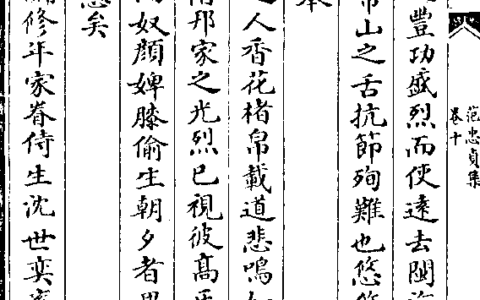 范忠貞集
卷十
豐功盛烈而使遠去閩
山之舌抗節殉難也悠
人香花楮帛載道悲鳴
邦家之光烈已視彼高
奴顏婢膝偷生朝夕者
矣
修年家眷侍生沈世奕